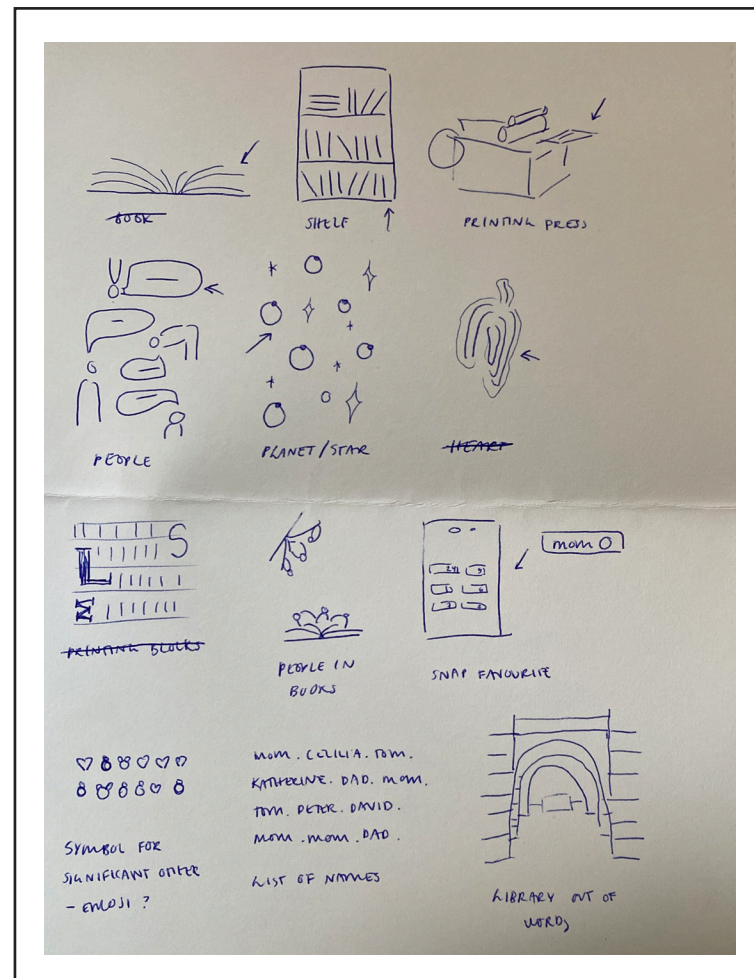 BOOK
SHELF
PRINTING PRESS
PEOPLE
PLANET/STAR
HEART
S
L
M
PRINTING BLOCKS
PEOPLE IN
BOOKS
mom O
SNAP FAVOURITE
SYMBOL FOR
SIGNIFICANT OTHER
- EMOJI ?
MOM. CECILIA. TOM.
KATHERINE. DAD. MOM.
TOM. PETER. DAVID.
MOM. MOM. DAD.
LIST OF NAMES
LIBRARY OUT OF
WORDS